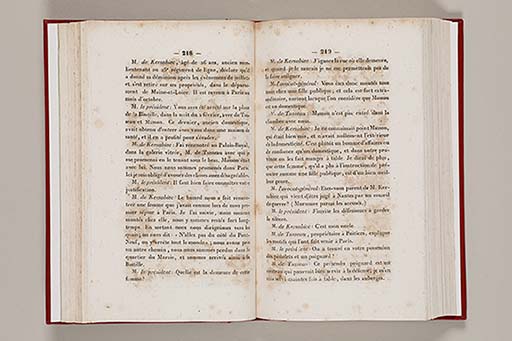 — 218 —
M. de Kersabiec, âgé de 26 ans, ancien sous-
lieutenant au 18e régiment de ligne, déclare qu'il
a donné sa démission après les événements de juillet
et s'est retiré sur ses propriétés, dans le départe-
ment de Maine-et-Loire. Il est revenu à Paris au
mois d'octobre.
M. le président: Vous avez été arrêté sur la place
de la Bastille, dans la nuit du 1 février, avec de Tu-
zeau et Manon. Ce dernier, ancien domestique,
avait obtenu d'entrer sous vous dans une maison de
santé, et il en a profité pour s'évader.
M. de Kersabiec: J'ai rencontré au Palais-Royal,
dans la galerie vitrée, M. de Tuzeau avec qui je
me promenai en le tenant sous le bras. Manon était
avec lui. Nous nous sommes promenés dans Paris
lui je suis obligé d'avouer des choses assez désagréables.
M. le président: Il faut bien faire connaître votre
justification.
M. de Kersabiec: Le hasard nous a fait rencon-
trer une femme que j'avais connue lors de mon pre-
mier séjour à Paris. Je l'ai suivie, nous sommes
montés chez elle, nous y sommes restés fort long-
temps. En sortant nous nous dirigeâmes vers les
quais; on nous dit: « N'allez pas du côté du Pont-
Neuf, on y arrête tout le monde; » nous avons pris
un autre chemin, nous nous sommes perdus dans le
quartier du Marais, et sommes arrivés ainsi à la
Bastille.
M. le président: Quelle est la demeure de cette
femme?
— 219 —
M. de Kersabiec: J'ignore la rue où elle demeure,
et quand je le saurais je ne me permettrais pas de
la faire assigner.
M. l'avocat-général: Vous êtes donc montés tous
trois chez une fille publique; et cela est fort extra-
ordinaire, surtout lorsque l'on considère que Manon
est un domestique.
M. de Tuzeau: Manon n'est pas entré dans la
chambre avec nous.
M. de Kersabiec: Je ne connaissais point Manon,
qui était bien mis, et n'avait nullement l'extérieur
de la domesticité. C'est plutôt un homme d'affaires ou
de confiance qu'un domestique, et dans notre pro-
vince on les fait manger à table. Je dirai de plus,
que cette femme, qu'il a plu à l'instruction de pré-
senter comme une fille publique, est d'un bien meil-
leur genre.
M. l'avocat-général: Êtes-vous parent de M. Ker-
sabiec qui vient d'être jugé à Nantes par un conseil
de guerre? (Murmure parmi les accusés.)
M. le président: J'invite les défenseurs à garder
le silence.
M. de Kersabiec: C'est mon oncle.
M. de Tuzeau, propriétaire à Poitiers, explique
les motifs qui l'ont fait venir à Paris.
M. le président: On a trouvé en votre possession
des pistolets et un poignard?
M. de Tuzeau: Ce prétendu poignard est un
couteau qui pourrait bien servir à la défense; je m'en
suis servi maintes fois à table, dans les auberges.